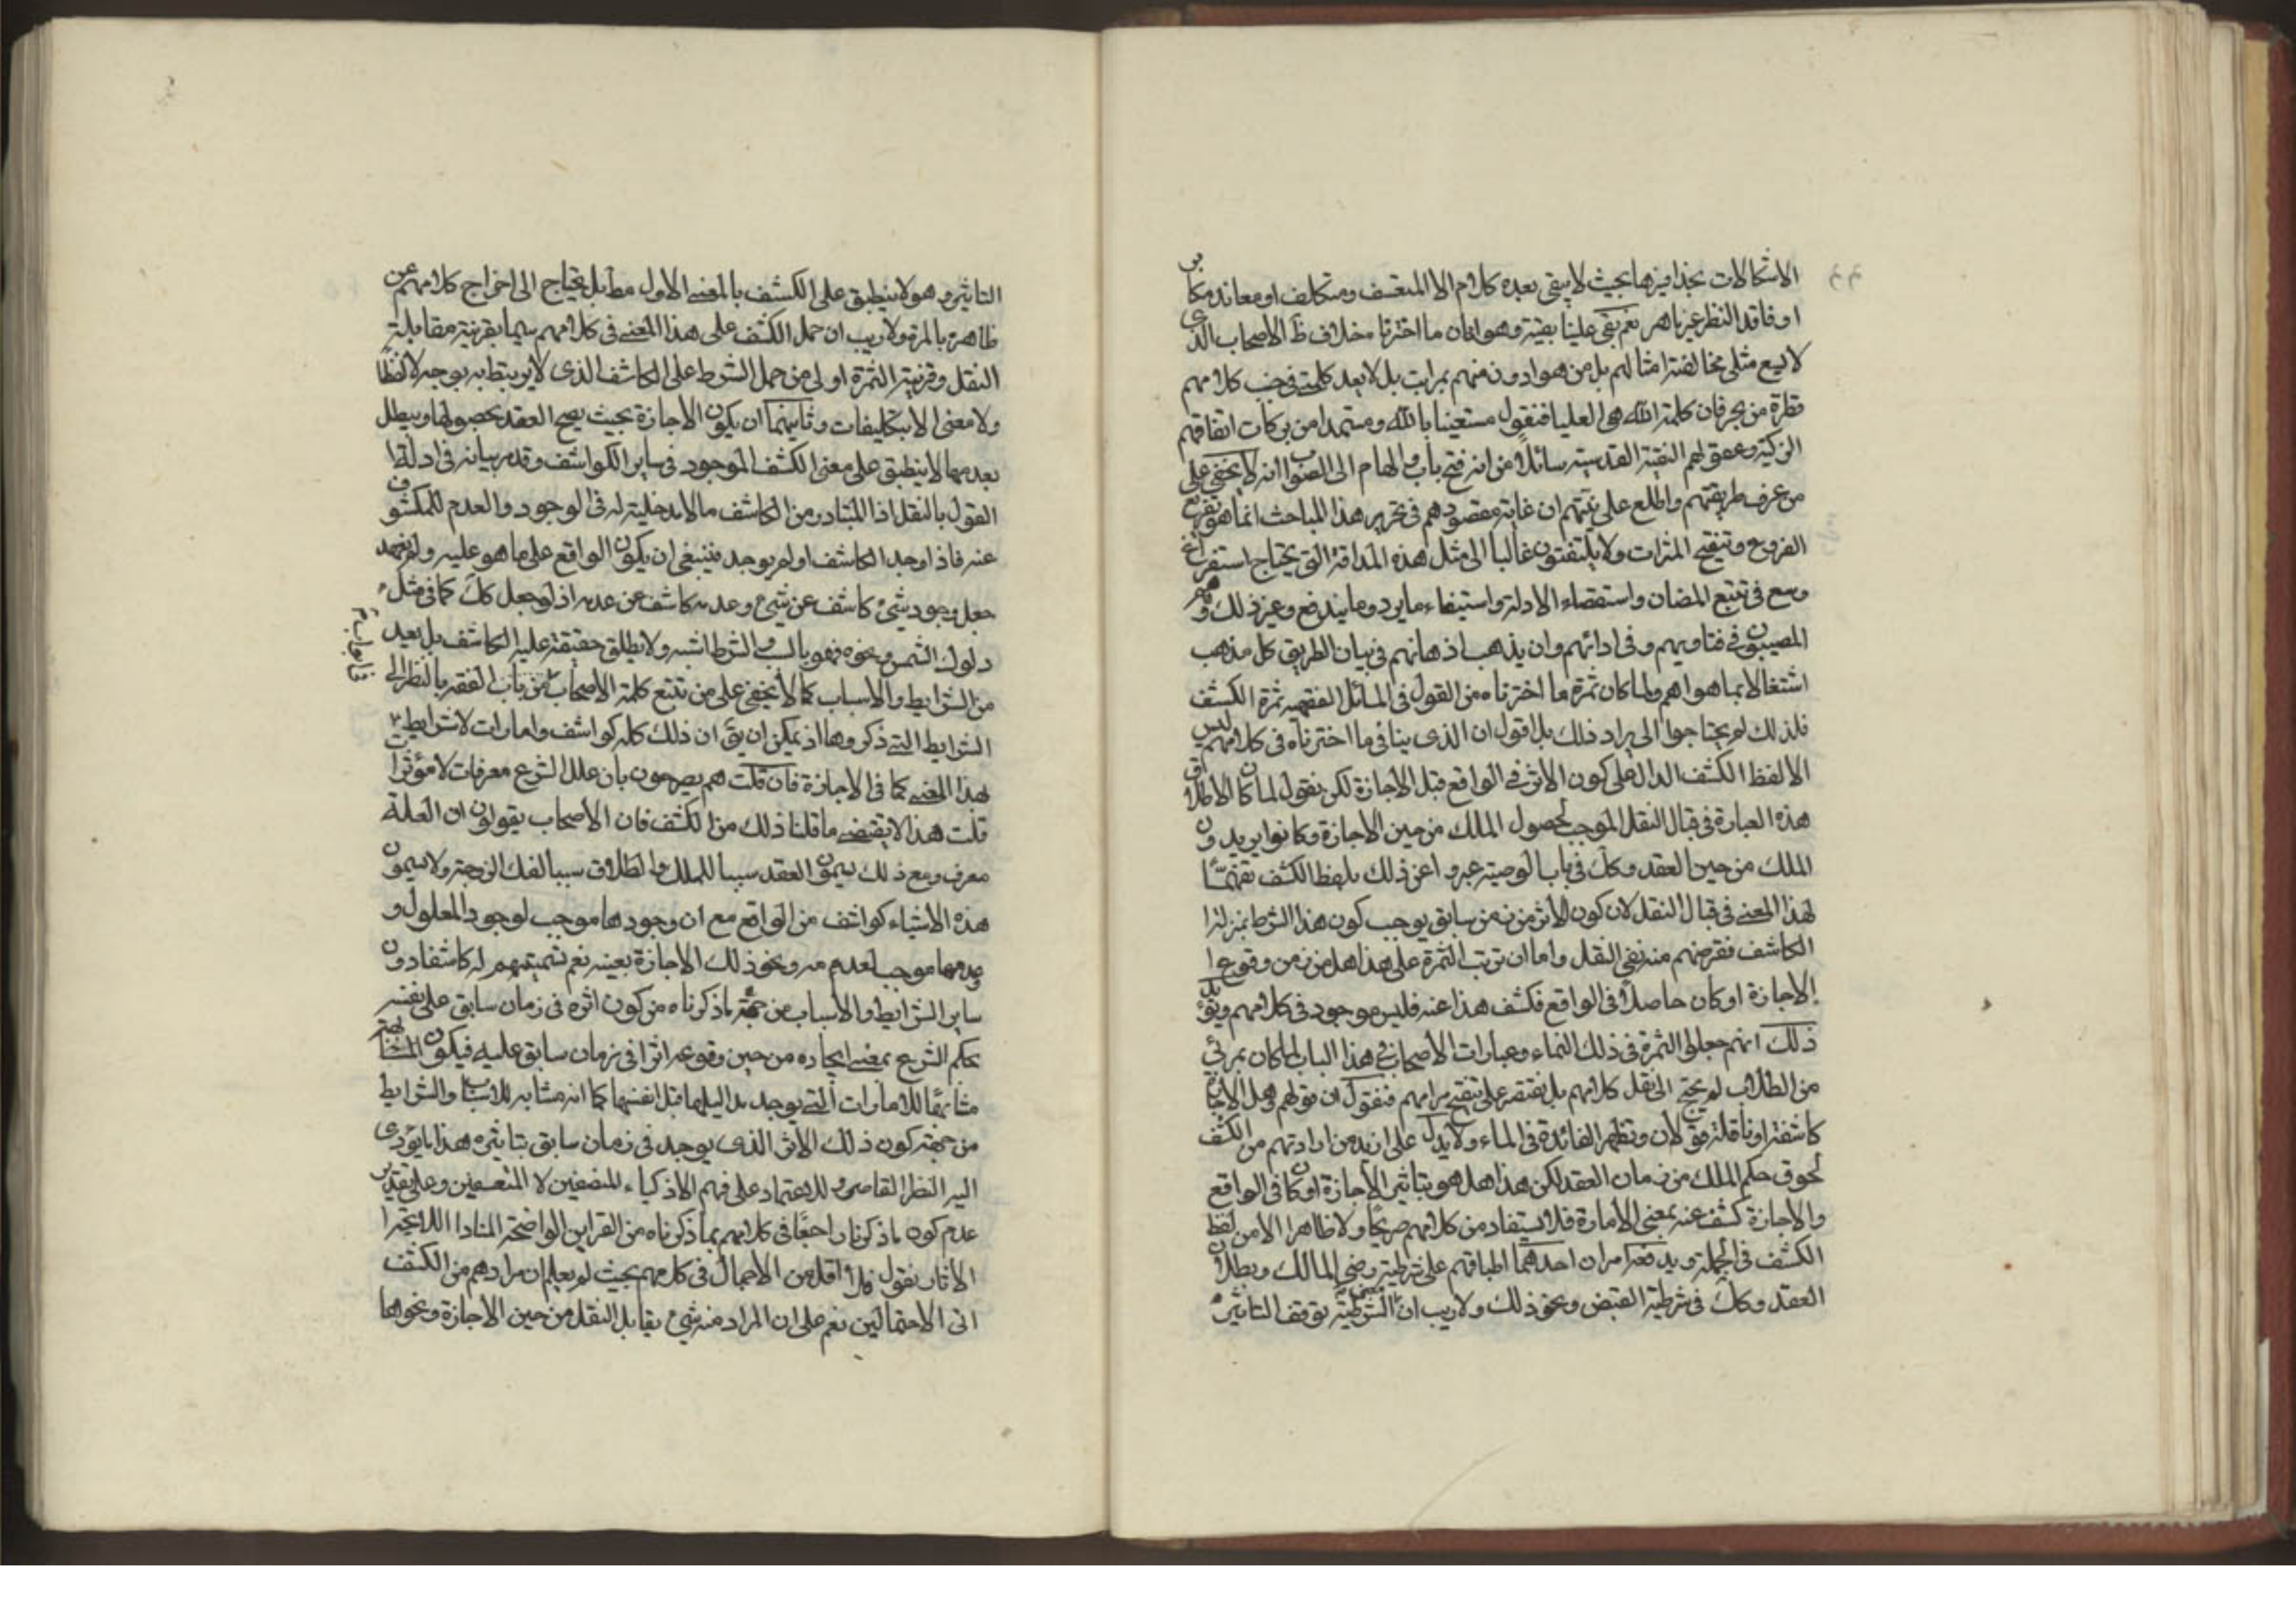 الاشكالات بحذافيرها بحيث لا يبقى بعده كلام الا المتعسف ومتكلف او معاند مكابر
او فاقد النظر غير ماهر نعم بقى علينا بقية وهو ان ما اخترنا خلاف ظ الاصحاب الذى
لا يسع مثلى مخالفة امثالهم بل من هو ادون منهم بمراتب بل لا يعد كلمتى فى جنب كلامهم
قطرة من بحر فان كلمة الله هى العليا فنقول مستعينا بالله ومستمدا من بركات اتفاقهم
الزكية وعقولهم النقية القدسية سائلا من الله فتح باب والهام الى الصواب انه لا يخفى على
من عرف طريقتهم واطلع على نيتهم ان غاية مقصودهم فى تحرير هذا المباحث انما هو تفريع
الفروع وتنقيح الثمرات ولا يلتفتون غالبا الى مثل هذه المداقة التى يحتاج استفراغ
وسع فى تتبع المضان واستقصاء الادلة واستيفاء ما يرد وما يندفع وغير ذلك وهم
المصيبون فى فتاويهم وفى ادائهم وان يذهب اذهانهم فى بيان الطريق كل مذهب
اشتغالا بما هو اهم ولما كان ثمرة ما اخترناه من القول فى المسائل الفقهيه ثمرة الكشف
فلذلك لم يحتاجوا الى ايراد ذلك بل اقول ان الذى ينافى ما اخترناه فى كلامهم ليس
الا لفظ الكشف الدال على كون الاثر فى الواقع قبل الاجازة لكن نقول لما كان الاطلاق
هذه العبارة فى قبال النقل الموجب لحصول الملك من حين الاجازة وكانوا يريدون
الملك من حين العقد وكك فى باب الوصية عبروا عن ذلك بلفظ الكشف تفهيمًا
لهذا المعنى فى قبال النقل لان كون الاثر من زمن سابق يوجب كون هذا الشرط بمنزلة
الكاشف فغرضهم منه نفى النقل واما ان ترتب الثمرة على هذا هل من زمن وقوع
الاجازة او كان حاصلًا فى الواقع فكشف هذا عنه فليس موجود فى كلامهم ويؤيد
ذلك انهم جعلوا الثمرة فى ذلك النماء وعبارات الاصحاب فى هذا الباب لما كان بمرئى
من الطلاب لم نحتج الى نقل كلامهم بل نقتصر على تنقيح مرامهم فنقول ان قولهم وهل الاجازة
كاشفة او ناقلة قولان وتظهر الفائدة فى النماء ولا يدل على ازيد من ارادتهم من الكشف
لحوق حكم الملك من زمان العقد لكن هذا هل هو بتاثير الاجازة او كان فى الواقع
والاجازة كشف عنه بمعنى الامارة فلا يستفاد من كلامهم صريحًا ولا ظاهرا الا من لفظ
الكشف فى الجملة ويدفعه امران احدهما اطباقهم على شرطية رضى المالك وبطلان
العقد وكك فى شرطية القبض ونحو ذلك ولا ريب ان معنى الشرطية توقف التاثير
التاثير وهو لا ينطبق على الكشف بالمعنى الاول مط بل يحتاج الى اخراج كلامهم عن
ظاهره بالمرة ولا ريب ان حمل الكشف على هذا المعنى فى كلامهم سيما بقرينة مقابلة
النقل وقرينة الثمرة اولى من حمل الشرط على الكاشف الذى لا يرتبط به بوجه لا لفظًا
ولا معنى الا بتكليفات وثانيهما ان يكون الاجازة بحيث يصح العقد بحصولها ويبطل
بعدمها لا ينطبق على معنى الكشف الموجود فى ساير الكواشف وقد مر بيانه فى ادلة
القول بالنقل اذ المتبادر من الكاشف ما لا مدخلية له فى الوجود والعدم للمكشوف
عنه فاذا وجد الكاشف او لم يوجد فينبغى ان يكون الواقع على ما هو عليه ولم نعهد
جعل وجود شئ كاشف عن شئ وعدمه كاشف عن عدمه اذ لو جعل كك كما فى مثل
دلوك الشمس ونحوه فهو بالسبب والشرط اشبه ولا يطلق حقيقة عليه الكاشف بل يعد
من الشرايط والاسباب كما لا يخفى على من تتبع كلمة الاصحاب فى باب الفقه بالنظر الى
الشرايط التى ذكروها اذ يمكن ان يق ان ذلك كله كواشف وامارات لا شرايط
بهذا المعنى كما فى الاجازة فان قلت هم يصرحون بان علل الشرع معرفات لا مؤثرات
قلت هذا لا يقتضى ما قلنا ذلك من الكشف فان الاصحاب يقولون ان العلة
معرف ومع ذلك يسمون العقد سببا للملك والطلاق سببا لفك الزوجية ولا يسمون
هذه الاشياء كواشف من الواقع مع ان وجودها موجب لوجود المعلول و
عدمها موجب لعدمه ونحو ذلك الاجازة بعينه نعم تسميتهم له كاشفا دون
ساير الشرايط والاسباب من جهة ما ذكرناه من كون اثره فى زمان سابق على نفسه
بحكم الشرع بمعنى ايجاده من حين وقوعه اثرا فى زمان سابق عليه فيكون
مشابهًا للامارات التى يوجد مداليلها قبل انفسها كما انه مشابه للاسباب والشرايط
من جهة كون ذلك الاثر الذى يوجد فى زمان سابق بتاثيره هذا ما يؤدى
اليه النظر القاصر وللاعتماد على فهم الاذكياء المنصفين لا المتعسفين وعلى تقدير
عدم كون ما ذكرنا راجحًا فى كلامهم بما ذكرناه من القراين الواضحة المنادا
الاثار نقول فلا اقل من الاجمال فى كلامهم بحيث لم يعلم ان مرادهم من الكشف
اى الاحتمالين نعم على ان المراد منه شئ يقابل النقل من حين الاجازة ونحوها